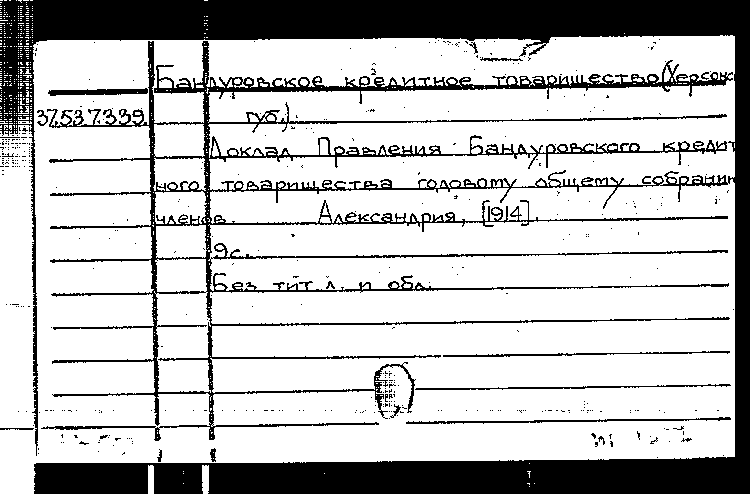 Бандуровское кредитное товарищество (Херсонс
37.53 7.339 губ.).
Доклад Правления Бандуровского кредит
ного товарищества годовому общему собранию
членов. Александрия, [1914].
9с.
Без тит. л. и обл.